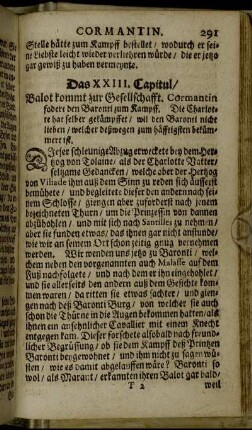 CORMANTIN. 291
Stelle hätte zum Kampff bestellet / wodurch er sei-
ne Liebste leicht wieder verliehren würde / die er jetzo
gar gewiß zu haben vermeynte.
Das XXIII. Capitul /
Balot kommt zur Gesellschafft. Cormantin
fodert den Baron zum Kampff. Die Charlot-
te hat selber gekämpffet / wil den Baroni nicht
lieben / welcher deßwegen zum häfftigsten beküm-
mert ist.
Dieser schleunige Abzug erweckete bey dem Her-
zog von Tolaine / als der Charlotte Vatter /
seltzame Gedancken / welche aber der Hertzog
von Villade ihm auß dem Sinn zu reden sich äusserst
bemühete / und begleitete dieser den andern nach sei-
nem Schlosse / giengen aber zuforderst nach jenem
bezeichneten Thurn / um die Princessin von dannen
abzuhohlen / und mit sich nach Santilles zu nehmen /
aber sie funden etwas / das ihnen gar nicht anstunde /
wie wir an seinem Ort schon zeitig gnug vernehmen
werden. Wir wenden uns jetzo zu Baronti / wel-
chem neben den vorgenannten auch Malasse auf dem
Fuß nachfolgete / und nach dem er ihn eingehohlet /
und sie allerseits den andern auß dem Gesichte kom-
men waren / da ritten sie etwas sachter / und gien-
gen nach deß Baronti Burg / von welcher sie auch
schon die Thürne in die Augen bekommen hatten / als
ihnen ein ansehnlicher Cavallier mit einem Knecht
entgegen kam. Dieser forschete alsobald nach freund-
licher Begrüssung / ob sie den Kampff deß Printzen
Baronti beygewohnet / und ihm nicht zu sagen wüs-
sten / wie es damit abgelauffen wäre? Baronti so
wol / als Marant / erkannten ihren Balot gar bald /
T 2 weil